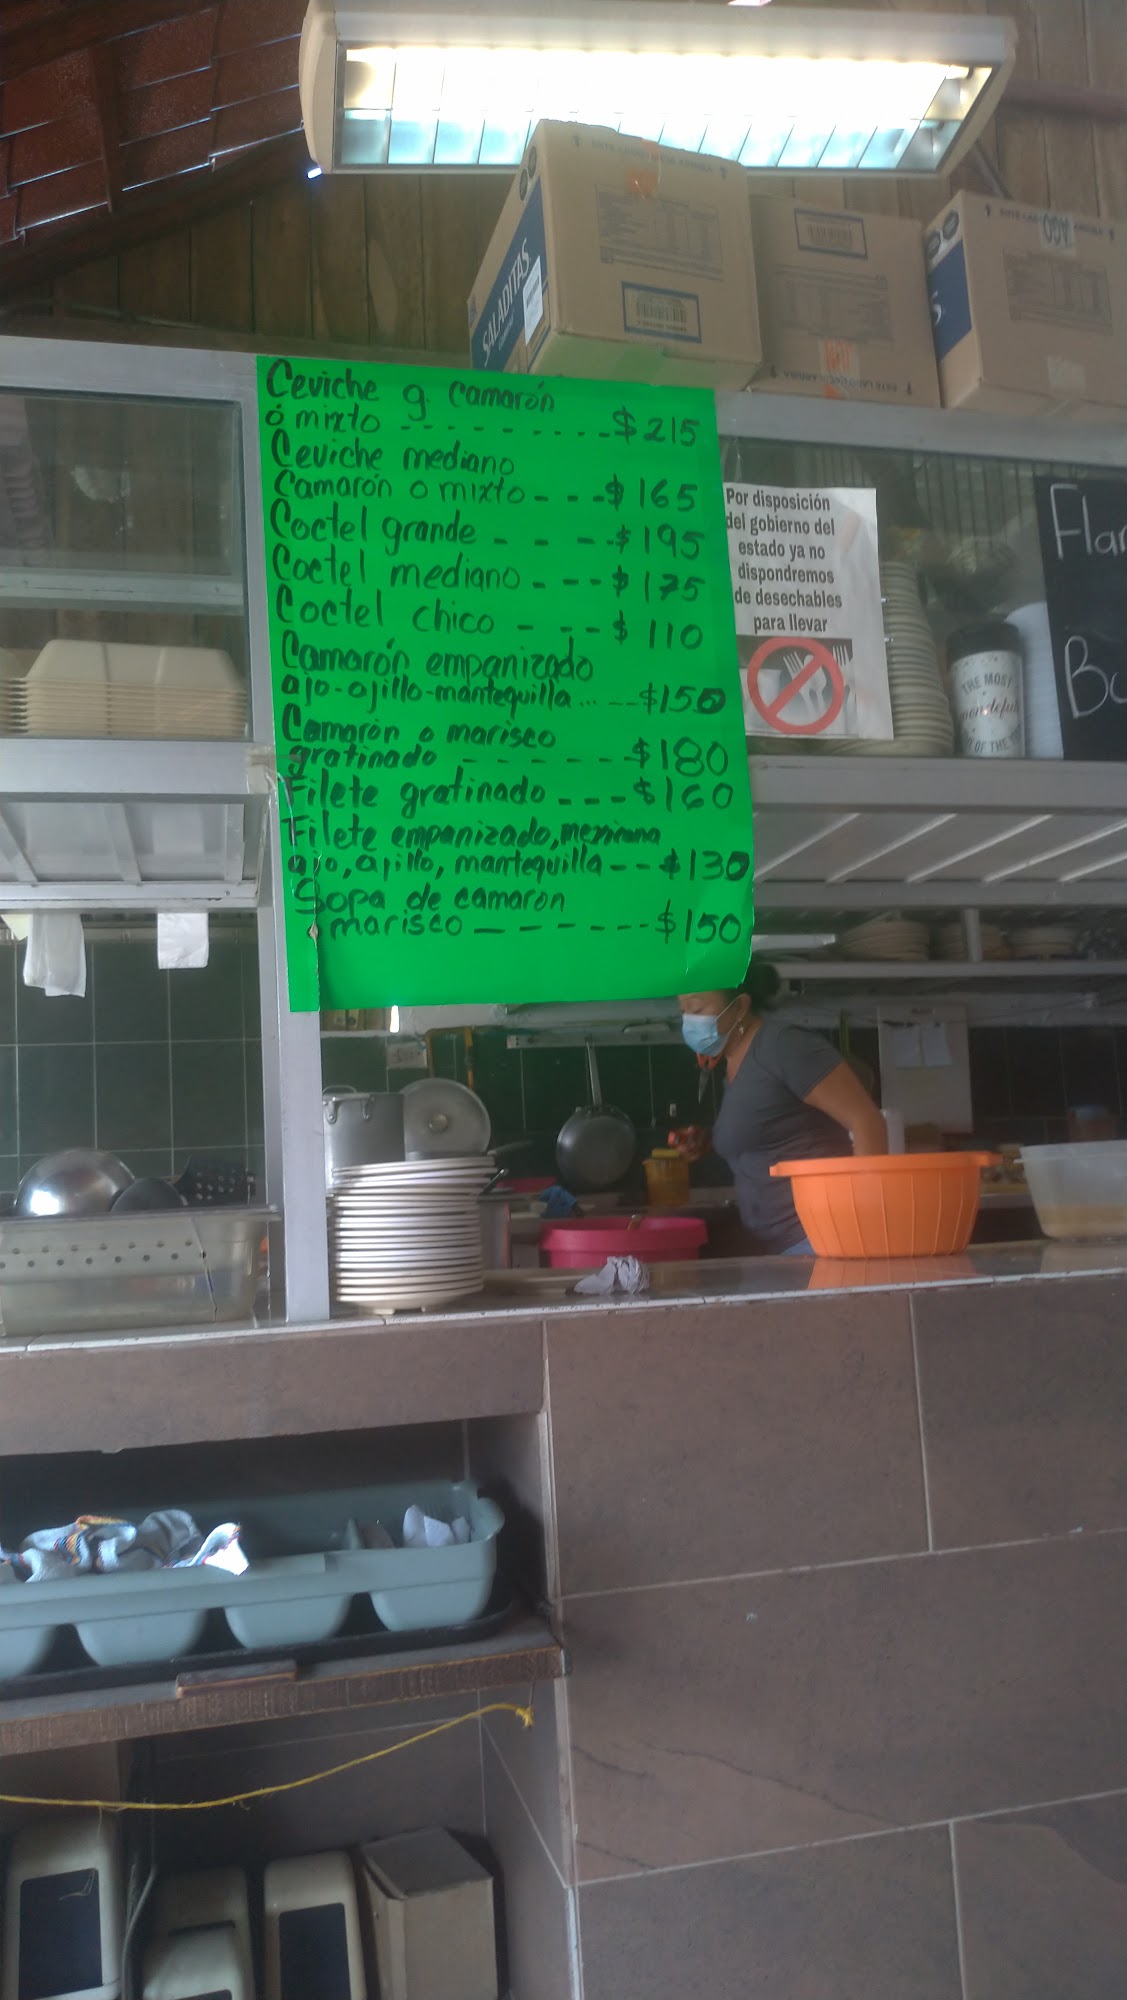 SALADITAS
Ceviche g. Camarón
ó mixto - - - - - - - - - $215
Ceviche mediano
Camarón o mixto - - - $165
Coctel grande - - - - $195
Coctel mediano - - - $175
Coctel chico - - - - $ 110
Camarón empanizado
ajo-ajillo-mantequilla... - - $150
Camarón o marisco
gratinado - - - - - - - $180
Filete gratinado - - - - $160
Filete empanizado, mexicana
ajo, ajillo, mantequilla - - $130
Sopa de camaron
o marisco - - - - - - - - $150
Por disposición
del gobierno del
estado ya no
dispondremos
de desechables
para llevar
Flan
THE MOST
wonderful
OF THE